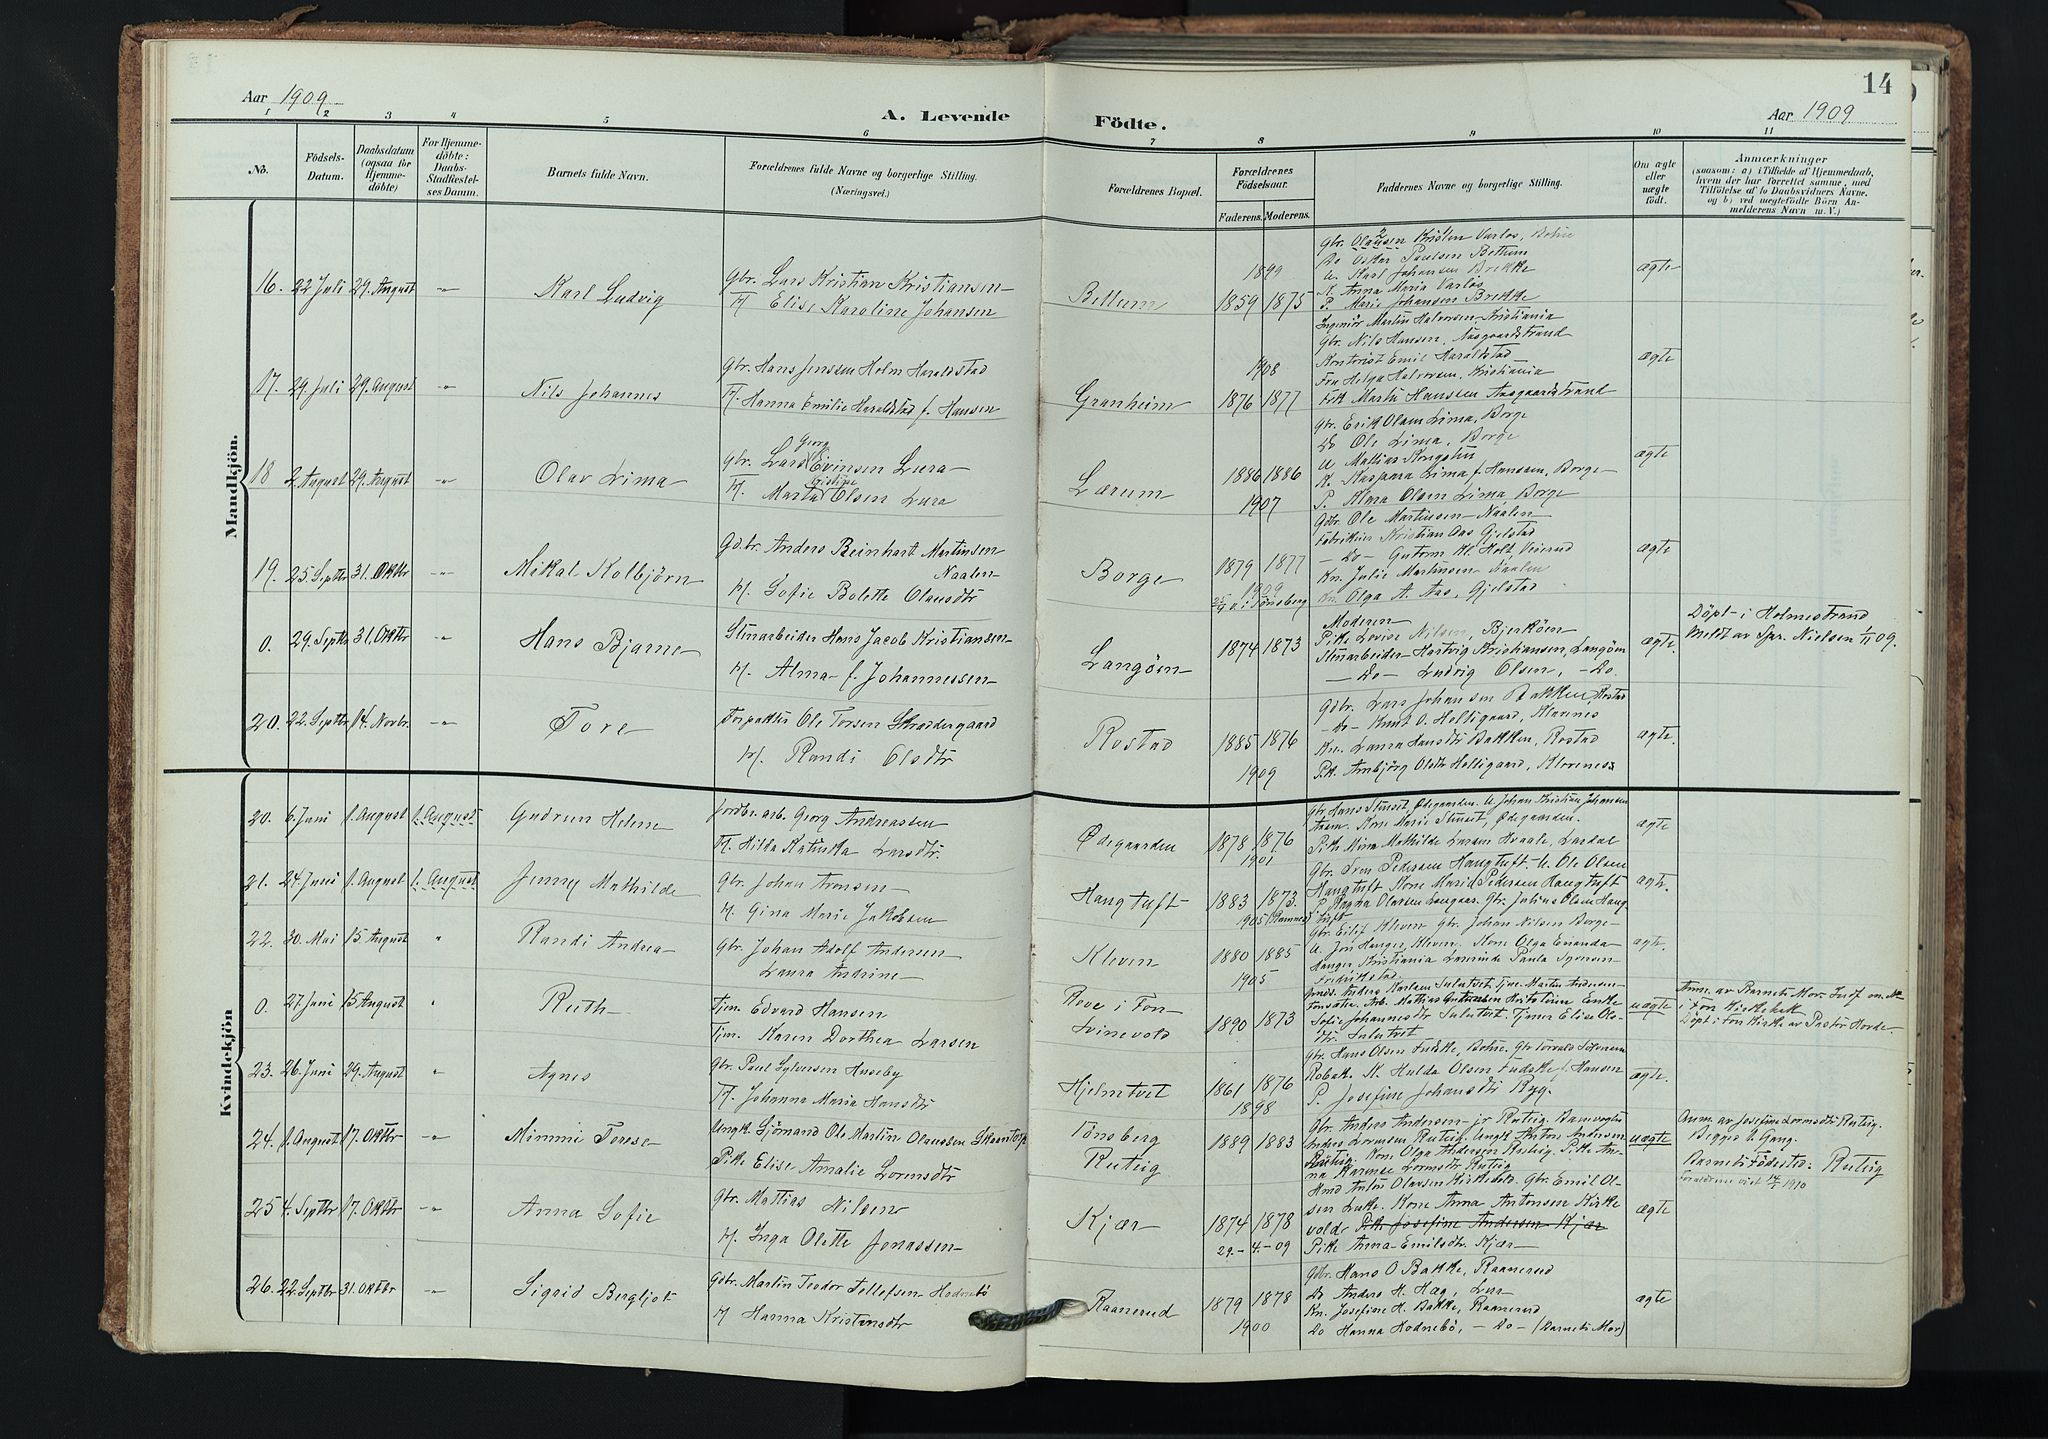 14
Aar 1909
A. Levende
Födte.
Aar 1909
1 2 3 4 5 6 7 8 9 10 11
No.
Födsels-Datum.
Daabsdatum (ogsaa for Hjemme-döbte)
For Hjemme-döbte: Daabs-Stadfæstel-ses Datum.
Barnets fulde Navn.
Forældrenes fulde Navne og borgerlige Stilling. (Næringsvei.)
Forældrenes Bopæl.
Forældrenes Födselsaar.
Faderens. Moderens.
Faddernes Navne og borgerlige Stilling.
Om ægte eller uægte födt.
Anmærkninger
(saasom: a) i Tilfælde af Hjemmedaab,
hvem der har forrettet samme, med
Tilföielse af to Daabsvidners Navne.
og b) ved uegtefödte Börn An-
melderens Navn m. V.)
Mandkjön.
16. 22 Juli 29. August -"- Karl Ludvig
Gbr. Lars Kristian Kristiansen
H. Elise Karoline Johansen
Bettum 1899 1859 1875
Gbr. Olausen Kristen Varlos, Bohre
Do Oskar Paulsen Bettum
U. Karl Johansen Brekke
K. Anna Maria Varlos
P. Marie Johansen Brekke
ægte
17. 29. Juli 29. August -"- Nils Johannes
Gbr. Hans Jenssen Holm Haraldstad
H. Hanna Emilie Haraldstad f. Hansen
Granheim 1908 1876 1877
Ingeniör Martin Halvorsen Kristiania
Gbr. Nils Hansen, Aasgaardstrand
Kontorist Emil Haraldstad
Fru Helga Halvorsen, Kristiania
Frk Marta Hanssen Aasgaardstrand
ægte
18 2. August 29. August -"- Olav Lima
Gbr. Lars Georg Evinsen Lura
H. Marta Kristine Olsen Lura
Lærum 1886 1886 1907
Gbr. Erik Olsen Lima, Borge
Do Ole Lima, Borge
U Mattias Kongshu
K. Kaspara Lima f. Hanssen, Borge
P. Alma Olsen Lima Borge
ægte
19. 25. Septbr 31. Oktbr -"- Mikal Kolbjörn
Gdbr. Anders Reinhart Martinsen Naalen
H. Sofie Bolette Olausdtr
Borge 1879 1877 1909 i Tönsberg
Gdbr. Ole Martinsen Naalen
Fabrikeier Kristian Aas Gjelstad
-Do- Gutorm Holt Veierud
Kn. Julie Martinsen Naalen
Kn. Olga A. Aas, Gjelstad
ægte
0. 29. Septbr 31. Oktbr -"- Hans Bjarne
Stenarbeider Hans Jacob Kristiansen
H. Alma f. Johannessen
Langöen 1874 1873
Moderen
Pike Lovise Nilsen, Bjerköen
Stenarbeider Hartvig Kristiansen, Langöen
-Do- Ludvig Olsen, -Do.
ægte.
Döpt i Holmestrand
Meldt av Spr. Nielsen 1/11 09.
20. 22. Septbr 14. Novbr. -"- Tore
Forpakter Ole Torsen Skraddergaard
H. Randi Olsdtr
Rostad 1885 1876 1909
Gdbr. Lars Johansen Bakken, Rostad
-Do- Knut O. Helligaard, Klarenes
Kn. Laura Hansdtr Bakken, Rostad
Pik. Ambjörg Olsdtr Helligaard, Klorenes
ægte.
Kvindekjön
20. 6. Juni 1. August 1. August Gudrun Helene
Jordbr. arb. Georg Andreassen
H. Hilda Katinka Larsdtr.
Ødegaarden 1878 1876 1901
Gbr. Hans Stenset, Ødegaarden. U. Johan Kristian Johansen
Aaen. Kone Marie Stenset, Ødegaarden.
Pike Mina Mathilde Larsen Kvaale, Lasdal
ægte
21. 24. Juni 1. August 1. August Jenny Mathilde
Gbr. Johan Arnsen
H. Gina Marie Jakobsen
Haugtuft 1883 1873. 1905 (Ramnes)
Gbr. Oren Pedersen Haugtuft U. Ole Olsen
Haugtuft Kone Marie Pedersen Haugtuft
P. Ragna Olavsen Langaas. Gbr. Julius Olsen Haug-
tuft
ægte.
22. 30. Mai 15. August " Randi Andrea
Gbr. Johan Adolf Andersen
Laura Andrine
Kleven 1880 1885 1905
Gbr. Eilef Kleven Gbr. Johan Nilsen Borge
U. Jon Hanger, Kleven. Kone Olga Enanda
Hanger Kristiania Paula Syversen
Fredrikstad
ægte.
0. 27. Juni 15 August " Ruth
Tjm. Edvard Hansen
Tjm. Karen Dorthea Larsen
Rove i Fon Svinevold 1890 1873
Anders Karlsen Sulutvet Tjm. Martin Andersen
Arb. Mathias Guttersen Hvitstein Enke
Sofie Johannesdtr Sulutvet. Tjener Elise Ols-
dtr. Sulutvet
uægte
Anm. av Barnets Mor. Indf.
i Fon Kirkebok
Döpt i Fon Kirke av Pastor Horde
23. 26. Juni 29. August " Agnes
Gbr. Paul Sylversen Huseby
H. Johanna Maria Hansdtr
Hjelmtvet 1861 1876 1898
Gbr. Hans Olsen Fudske, Bohre. Gbr Torvald Solversen
Robak. K. Hulda Olsen Fudske f. Hansen
P. Josefine Johansdtr Ryg.
ægte.
24. 1. August 17. Oktbr " Mimmi Terese
Ungk. Sjömand Ole Martin Olaussen Skontorp
Pike Elise Amalie Lorensdtr
Tönsberg Ruteig 1889 1883
Gbr. Anders Andersen jr Ruteig
Anders Lorensen Ruteig. Ungk Anton Andersen
Ruteig. Kone Olga Andersen Ruteig. Pike An-
na Karense Lorensdtr Ruteig
uægte
Anm. av Josefine Lorensdtr Ruteig.
Begges 1. Gang.
Barnets Födested: Ruteig
Forældrene viet 1910
25 4. Septbr 17. Oktbr -"- Anna Sofie
Gbr. Mattias Nilsen
H. Inga Olette Jonassen
Kjær 1874 1878 29.-4.-09
Gmd Anton Olavsen Kirkevold. Gbr. Emil Ol-
sen Lake. Kone Anna Antonsen Kirke
vold. Pike Josefine Andersen Kjær
Pike Anna Emilsdtr. Kjær
ægte
26. 22. Septbr 31. Oktbr -"- Sigrid Bergljot
Gdbr. Martin Teodor Tollefsen Hodnebö
H Hanna Kristensdtr
Raanerud 1879 1878 1900
Gdbr. Hans O Bakke, Raanerud
Do Anders H. Høg, Lur
Kn. Josefine H. Bakke, Raanerud
Do Hanna Hodnebö, -Do- (Barnets Mor)
ægte